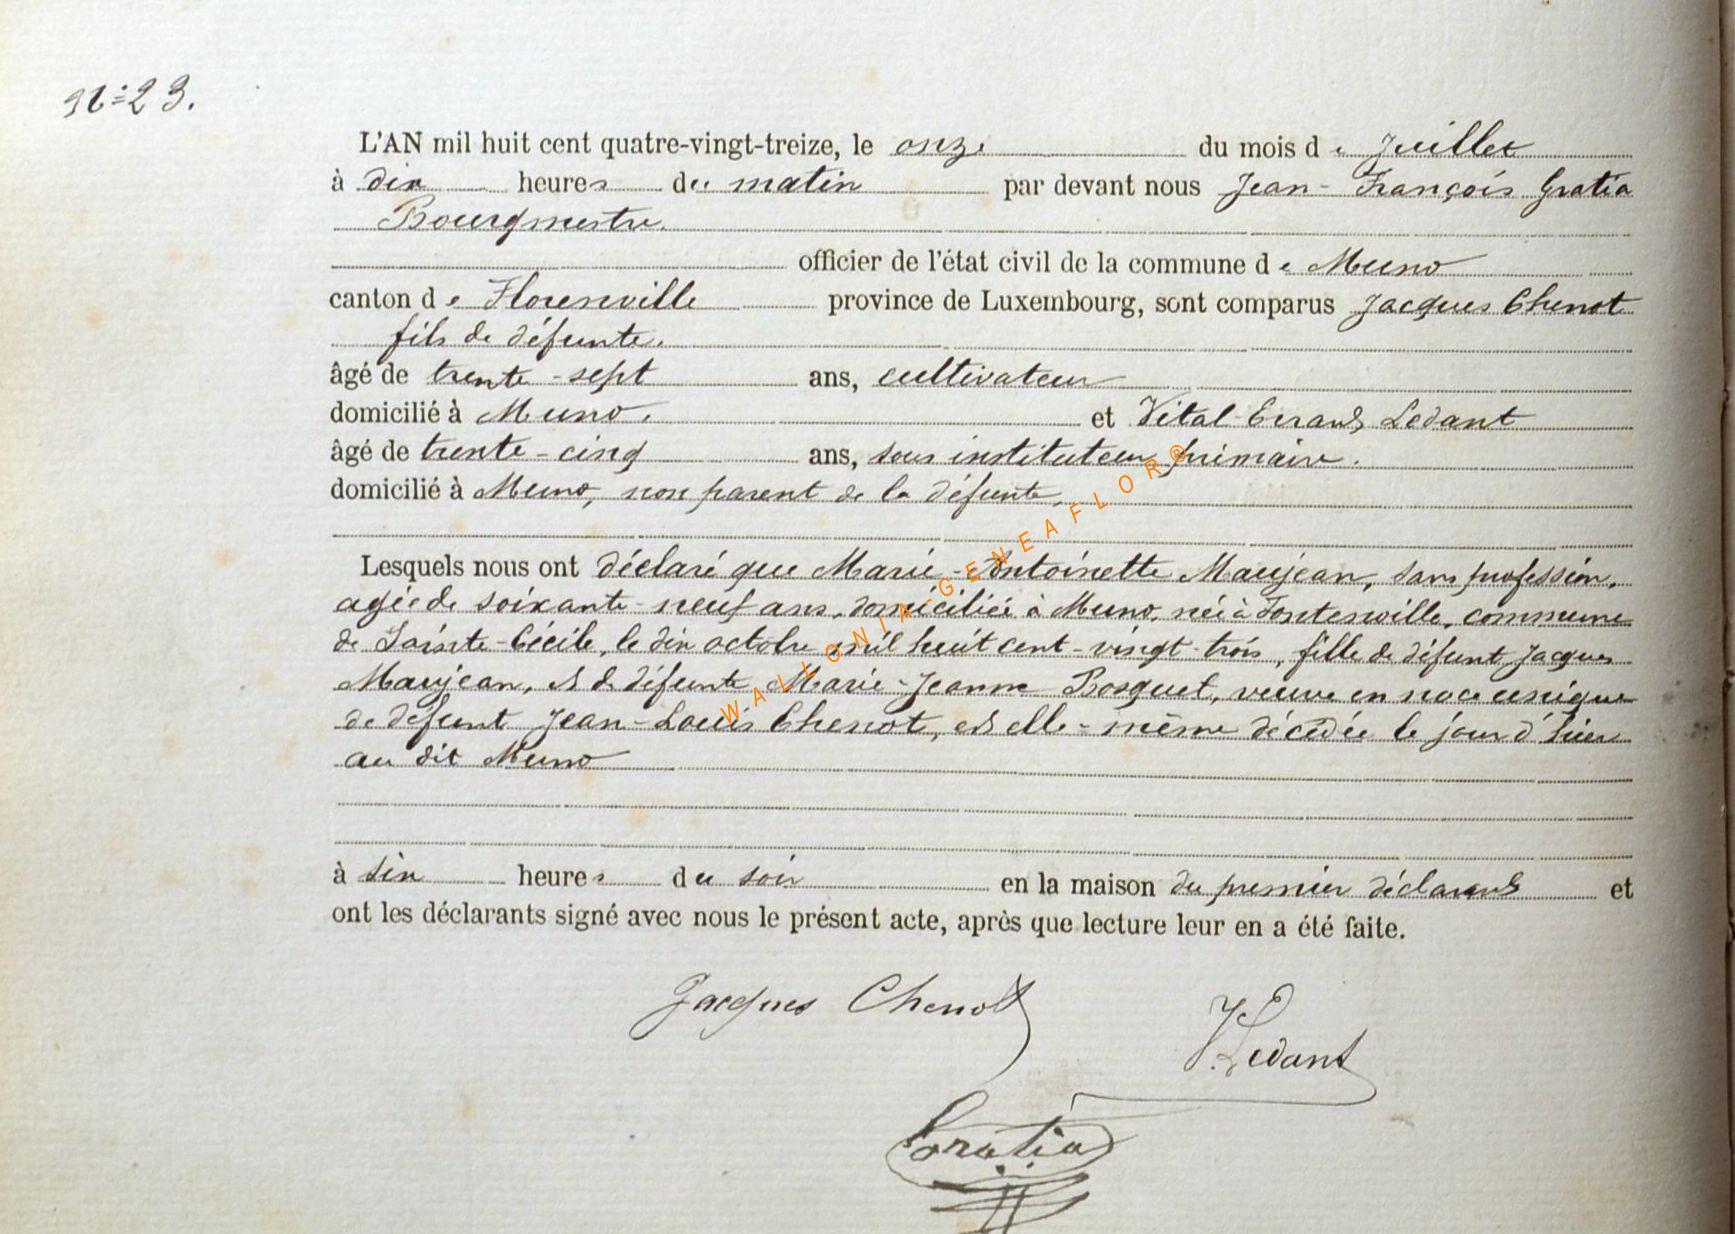 N° 23.
L'AN mil huit cent quatre-vingt-treize, le onze du mois de Juillet
à dix heures du matin par devant nous Jean-François Gratia
Bourgmestre.
officier de l'état civil de la commune de Muno
canton de Florenville province de Luxembourg, sont comparus Jacques Chenot
fils de défunte.
âgé de trente-sept ans, cultivateur
domicilié à Muno. et Vital Ledant
âgé de trente-cinq ans, sous instituteur primaire.
domicilié à Muno, non parent de la défunte,
Lesquels nous ont déclaré que Marie-Antoinette Maujean, sans profession,
agée de soixante-neuf ans, domiciliée à Muno, née à Fontenoille, commune
de Sainte-Cécile, le dix octobre mil huit cent-vingt-trois, fille de défunt Jacques
Maujean, et de défunte Marie-Jeanne Bosquet, veuve en noce unique
de défunt Jean-Louis Chenot, est elle-même décédée le jour d'hier
au dit Muno
à six heures du soir en la maison du premier déclarant et
ont les déclarants signé avec nous le présent acte, après que lecture leur en a été faite.
Jacques Chenot
V. Ledant
Gratia
WALLONIA-GENEAFLOR®